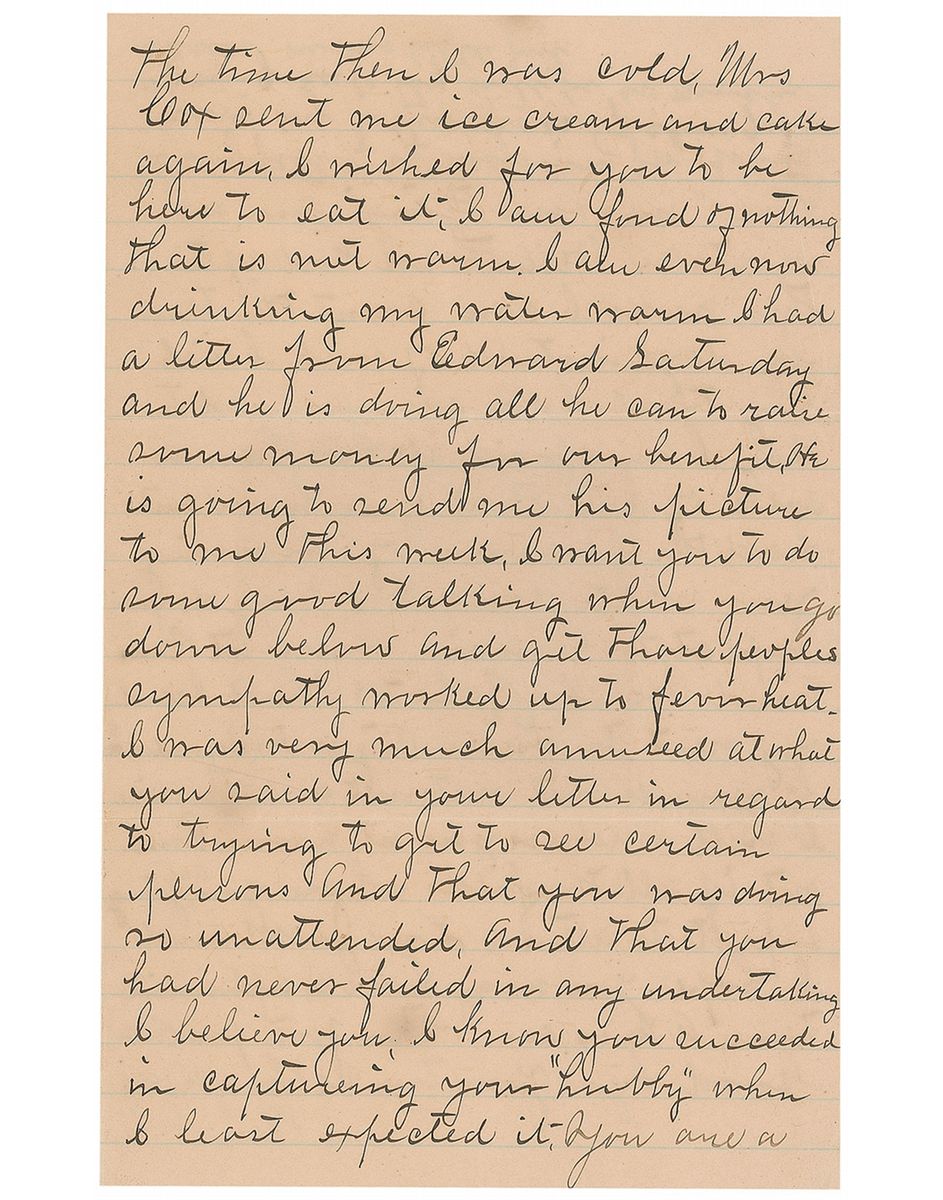 The time Then I was cold, Mrs
Cox sent me ice cream and cake
again, I wished for you to be
here to eat it, I am fond of nothing
that is not warm. I am even now
drinking my water warm I had
a letter from Edward Saturday
and he is doing all he can to raise
some money for our benefit, He
is going to send me his picture
to me this week, I want you to do
some good talking when you go
down below and get those peoples
sympathy worked up to fever heat.
I was very much amuseed at what
you said in your letter in regard
to trying to get to see certain
persons And that you was doing
so unattended, And that you
had never failed in any undertaking
I believe you, I know you succeeded
in captureing your "hubby" when
I least expected it, You are a